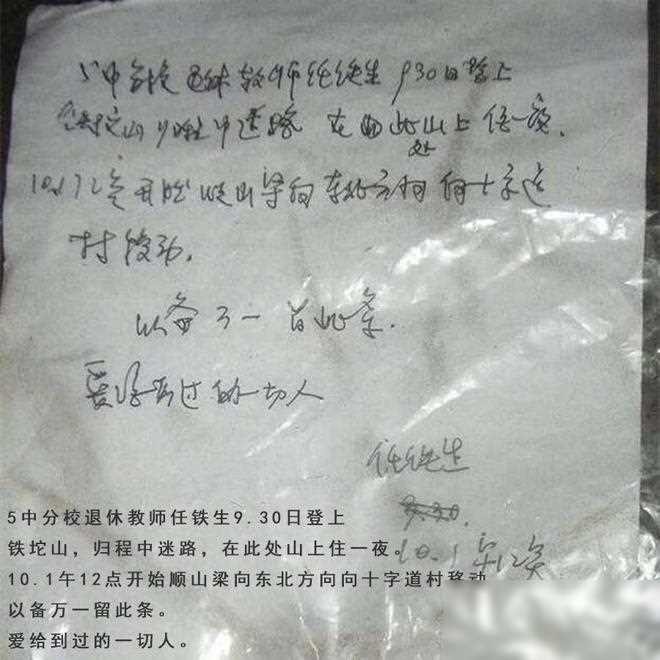 5中分校退休教师任铁生9.30日登上
铁坨山归程中迷路 在此处山上住一夜.
10.1 12点开始顺山梁向东北方向向十字道
村移动.
以备万一留此条.
爱给到过的一切人
任铁生
9.30.
10.1午12点
5中分校退休教师任铁生9.30日登上
铁坨山，归程中迷路，在此处山上住一夜。
10.1午12点开始顺山梁向东北方向向十字道村移动
以备万一留此条。
爱给到过的一切人。